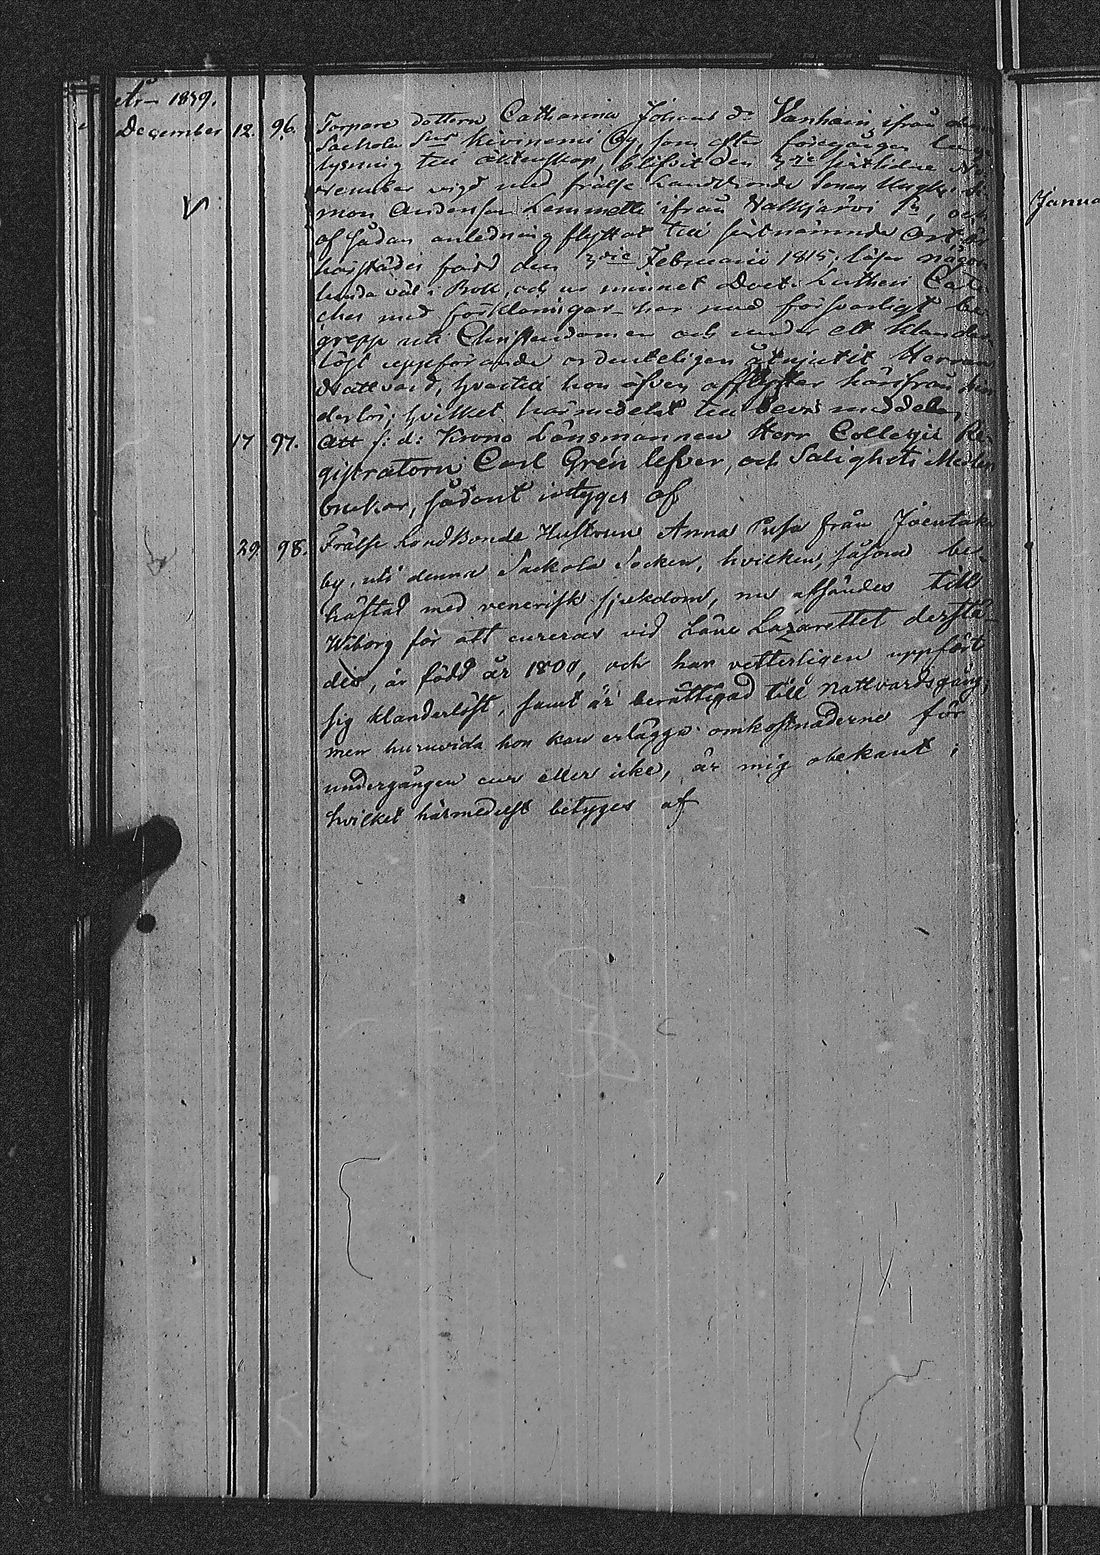 År 1839.
December 12. 96. Torpare dottern Catharina Johans dr Vanhain ifrån denna
Sackola Sns Kivinemi By, som efter föregången
lysning till äktenskap, blifvit den 3die sistledne No-
vember vigd med frälse Landbonde Sonen Si-
mon Anderson Lemmetti ifrån Walkjärvi Sn, och
af sådan anledning flyttat till sistnämnde Ort, är
härstädes född den 3die Februarii 1815; läser någor-
lunda väl i Bok, och ur minnet Doct. Lutheri Cate-
ches med förklaringar, har med försvarligt be-
grepp uti Christendomen och under ett klander-
löst uppförande ordenteligen åtnjutit Herrans
Nattvard, hvartill hon äfven afflyttar härifrån hin-
derlös; hvilket härmedelst till bevis meddelas
17 97. Att f: d: Krono Länsmannen Herr Collegii Re-
gistratorn Carl Grén lefver, och Salighets Medlen
brukar, sådant intygges af
29. 98. Frälse Landbonde Hustrun Anna Pusa från Joentaka
by, uti denna Sackola Socken, hvilken, såsom be-
häftad med venerisk sjukdom, nu afsändes till
Wiborg för att cureras vid Läne Lazarettet derstä-
des, är född år 1800, och har vetterligen uppfört
sig klanderlöst, samt är berättigad till Nattvardsgång;
men huruvida hon kan erlägga omkostnaderne för
undergången cur eller icke, är mig obekant;
hvilket härmedelst betyges af
Janua